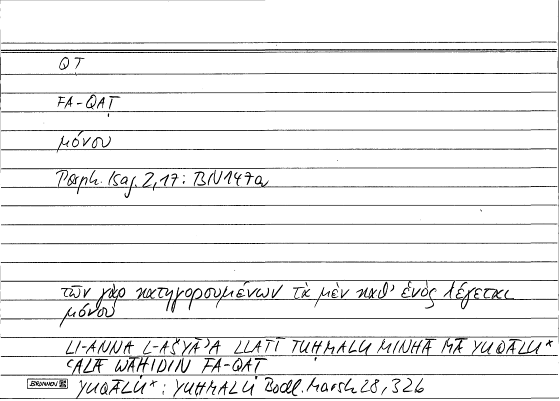 QṬ
FA-QAṬ
μόνου
Porph. Isag. 2,17: BN147a
τῶν γὰρ κατηγορουμένων τὰ μὲν καθ' ἑνὸς λέγεται
μόνου
LI-ANNA L-AŠYĀʾA LLATĪ TUḤMALU MINHĀ MĀ YUQĀLU*
ʿALĀ WĀḤIDIN FA-QAṬ
BRUNNEN YUQĀLU*: YUḤMALU Bodl. Marsh 28,326